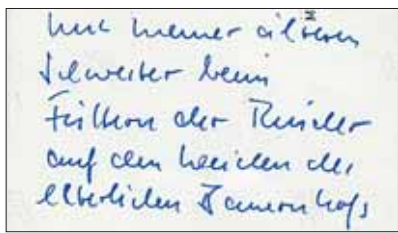 mit meiner älteren
Schwester beim
Füttern der Rinder
auf den Weiden des
elterlichen Bauernhofs